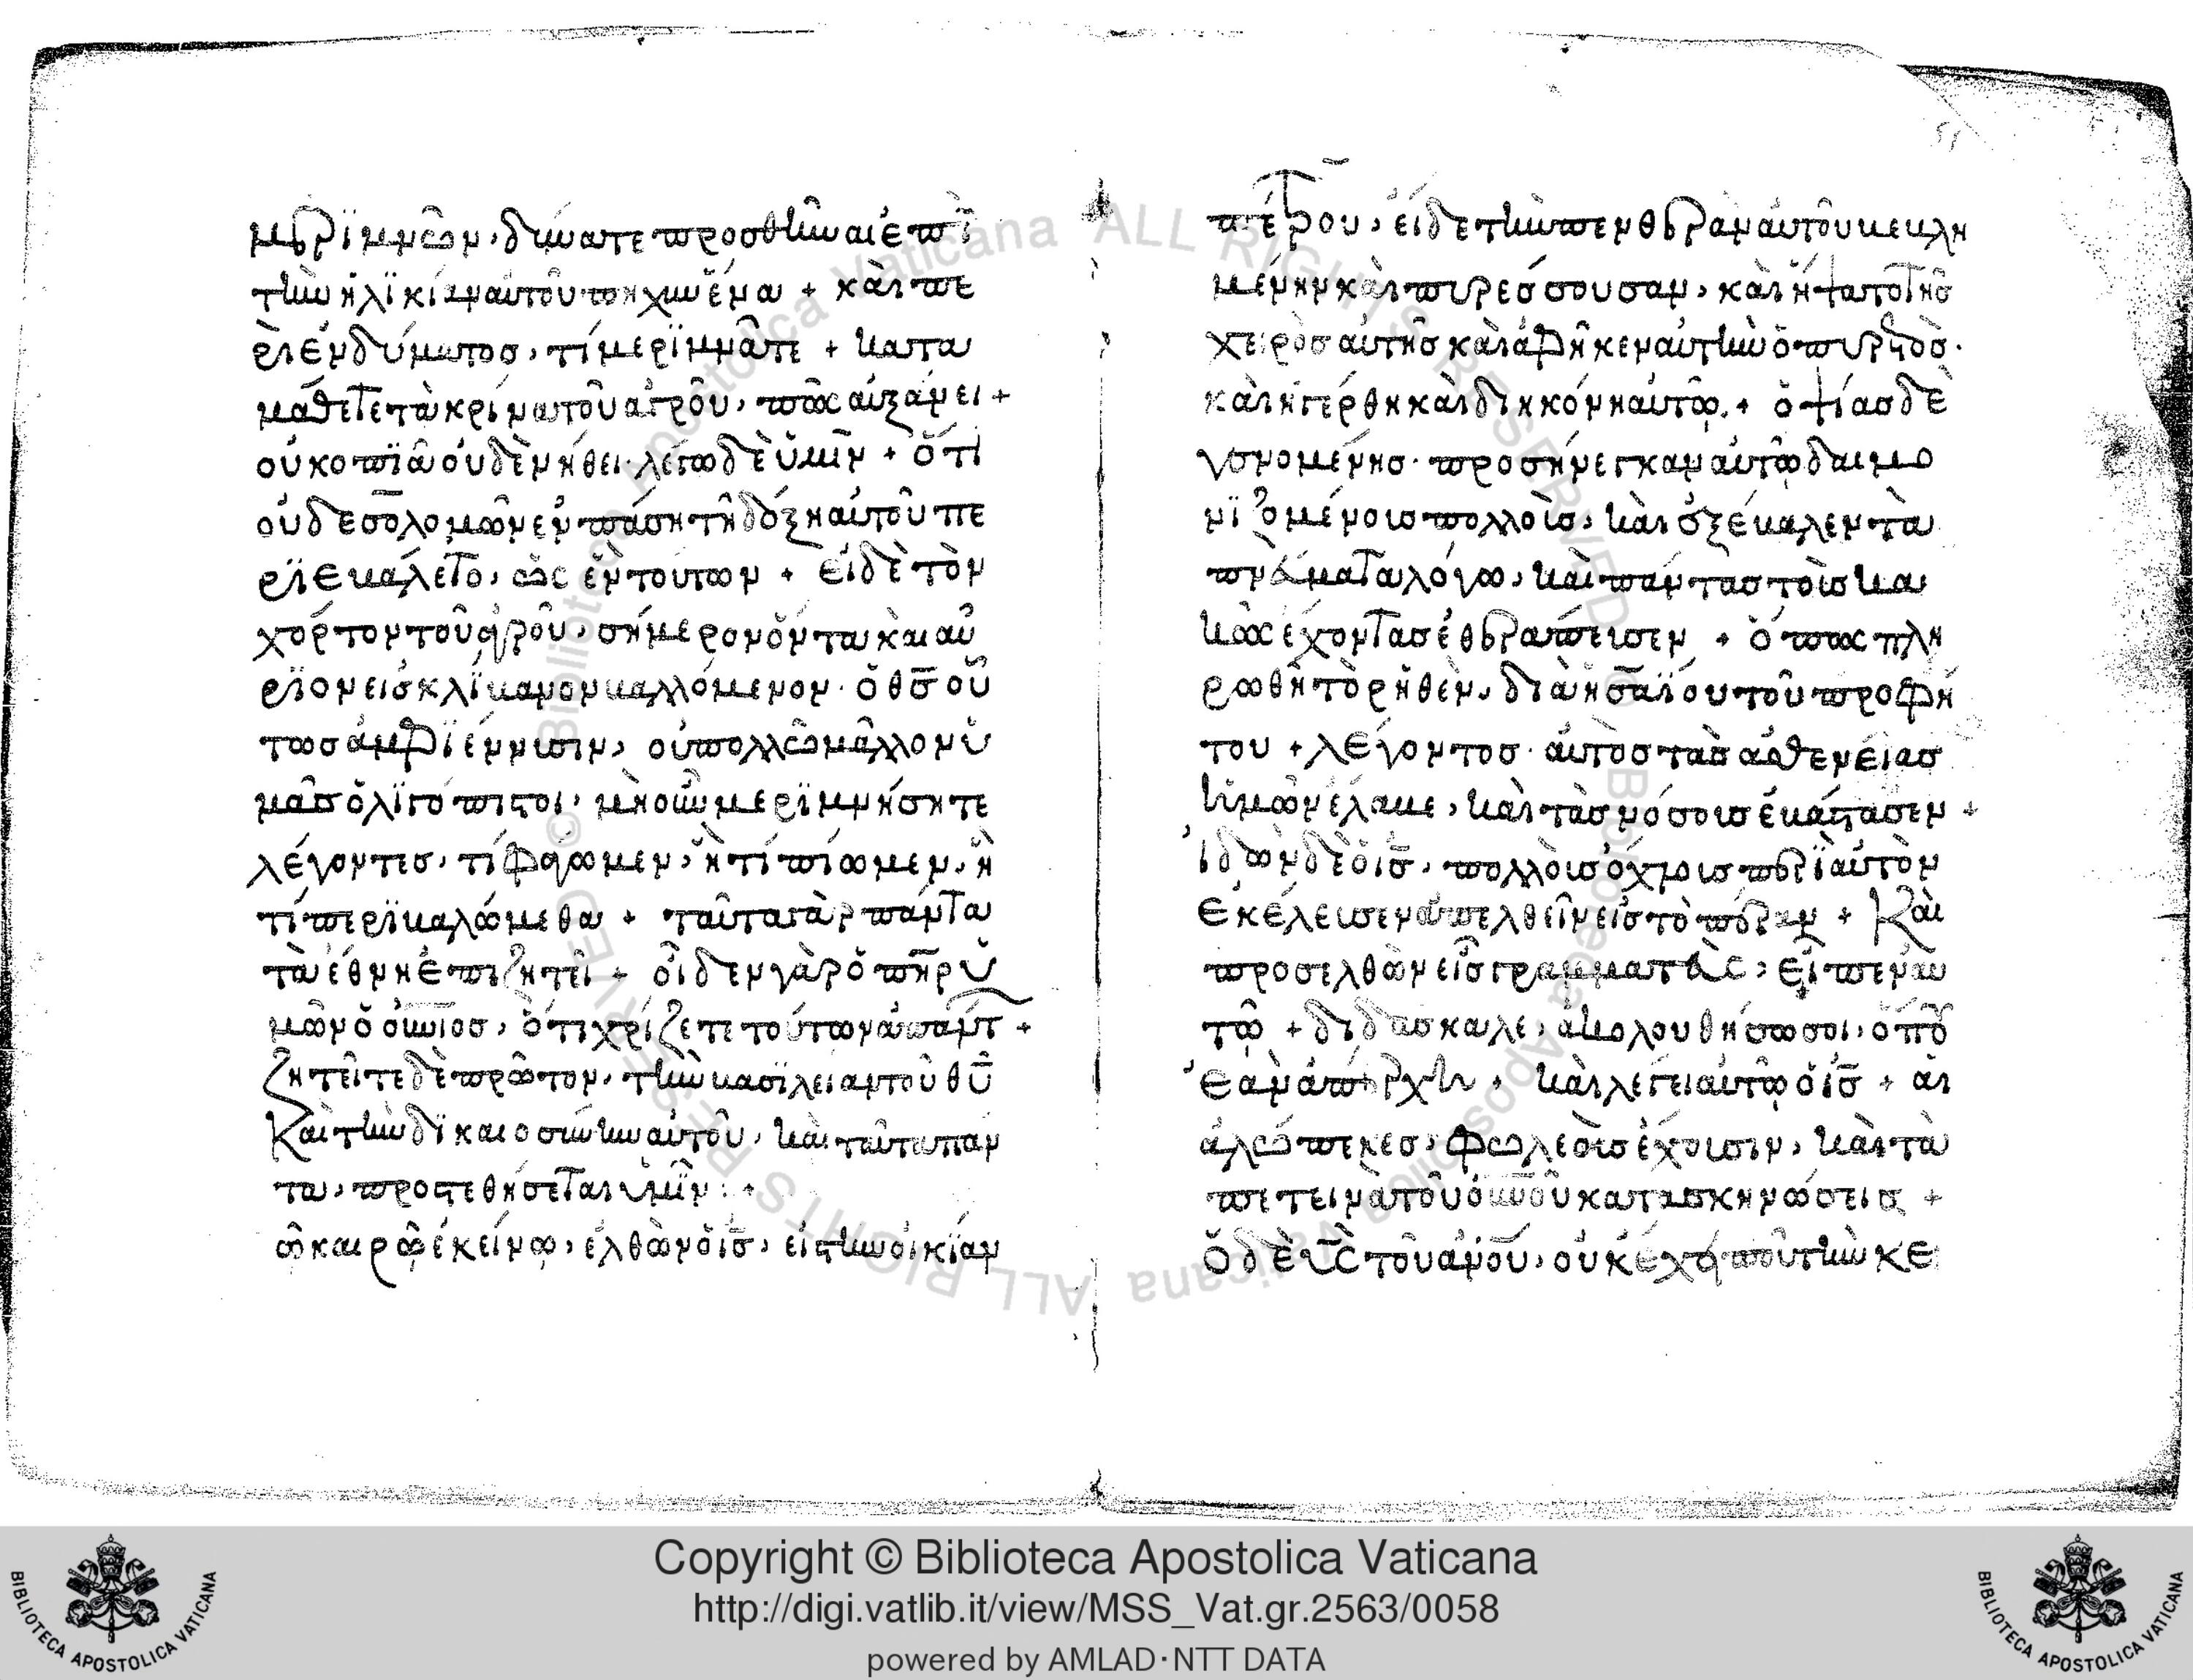 μεριμνῶν, δύναται προσθῆναι ἐπῒ
τὴν ἡλϊκίαν αὐτοῦ πηχυν ἕνα + καὶ πε
ρὶ ἐνδύματος, τί μερϊμνᾶτε + κατα
μάθετε τὰ κρίνα τοῦ ἀγροῦ, πῶς αὐξάνει +
οὐ κοπϊᾶ οὐδὲ νήθει· λέγω δὲ ὑμῖν + ὅτι
οὐδε σολομῶν ἐν πάσῃ τῇ δόξῃ αὐτοῦ πε
ρϊεκαλετο, ὡς ἓν τουτων + εἰ δὲ τὸν
χόρτον τοῦ ἀγροῦ, σήμερον ὄντα καὶ αὔ
ρϊον εἰς κλϊκανον καλλόμενον· ὁ θς οὕ
τως ἀμφϊέννυσιν, οὐ πολλῶ μᾶλλον ὑ
μᾶς ὀλϊγόπιστοι, μὴ οὖν μερϊμνήσητε
λέγοντες, τί φάγωμεν, ἢ τί πίωμεν, ἢ
τί περϊκαλώμεθα + ταῦτα γὰρ πάντα
τὰ ἔθνη ἐπιζητεῖ + οἶδεν γὰρ ὁ πηρ ὑ
μῶν ὁ οὐνιος, ὅτι χρίζετε τούτων ἁπάντ +
ζητεῖτε δὲ πρῶτον, τὴν κασϊλειαν τοῦ θυ
Καὶ τὴν δϊκαιοσύνην αὐτοῦ, καὶ ταῦτα παν
τα, προστεθήσεται ὑμῖν : +
ῶ καιρῶ ἐκείνω, ἐλθὼν ὁ ις, εἰς τὴν οἰκϊαν
πέτρου, εἶδε τὴν πενθερὰν αὐτοῦ κεκλη
μένην καὶ πυρέσσουσαν, καὶ ἥψατο τῆς
χειρὸς αὐτῆς καὶ ἀφῆκεν αὐτὴν ὁ πυρετὸς.
καὶ ἠγέρθη καὶ διηκόνη αὐτῶ. + ὀψίας δὲ
γενομένης. προσήνεγκαν αὐτῶ δαιμο
νϊζομένους πολλοὺς, καὶ ἐξέκαλεν τὰ
πνάματα λόγω, καὶ πάντας τοὺς κα
κῶς ἔχοντας ἐθεράπευσεν + ὅπως πλη
ρωθῆ τὸ ρηθὲν, διὰ ἡσαϊου τοῦ προφή
του + λέγοντος· αὐτὸς τὰς ἀσθενείας
ἡμῶν ἔλακε, καὶ τὰς νόσους ἐκάστασεν +
ἰδὼν δὲ ὁ ις, πολλοὺς ὄχλους περϊ αὐτὸν
ἐκέλευσεν ἀπελθεῖν εἰς τὸ πέραν + Καὶ
προσελθὼν εἷς γραμματεὺς, εἶπεν αὐ
τῶ + διδάσκαλε, ἀκολουθήσω σοι, ὅπου
ἐὰν ἀπέρχη + καὶ λέγει αὐτῶ ὁ ις + αἱ
ἀλώπεκες, φωλεοὺς ἔχουσιν, καὶ τὰ
πετεινὰ τοῦ οὐνοῦ κατασκηνώσεις +
Ὁ δὲ υς τοῦ ανου, οὐκ ἔχει ποῦ τὴν κε